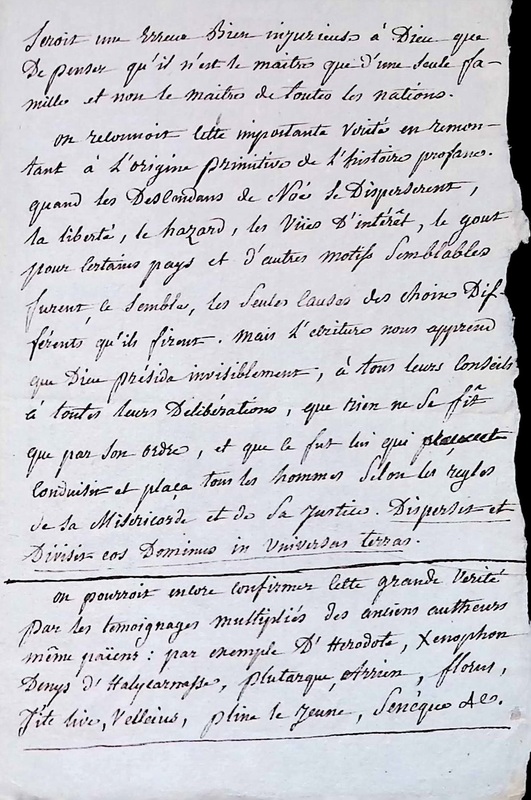 Seroit une Erreur Bien injurieuse à Dieu que
De penser qu'il n'est le maitre que d'une seule fa-
mille et non le maitre de toutes les nations.
on reconnoit cette importante verité en remon-
tant à L'origine primitive de L'histoire profane.
quand les Descendans de Noé se Disperserent,
la liberté, le hazard, les Viies D'intérêt, le gout
pour Certains pays et d'autres motifs Semblables
furent, ce semble, les seules causes des choix Dif-
férents qu'ils firent. mais L'écriture nous apprend
que Dieu présida invisiblement, à tous leurs Conseils
à toutes leurs Délibérations, que rien ne Se fît
que par Son ordre, et que ce fut lui qui
Conduisit et plaça tous les hommes Selon les regles
de sa Misericorde et de Sa Justice. Dispersit et
Divisit eos Dominus in Universas terras.
on pourroit encore confirmer Cette grande Verité
par les temoignages multipliés des anciens autheurs
même païens : par exemple D'Herodote, Xenophon
Denys d'Halycarnasse, plutarque, Arrien, florus,
Tite live, Velleius, pline le Jeune, Senèque &c.